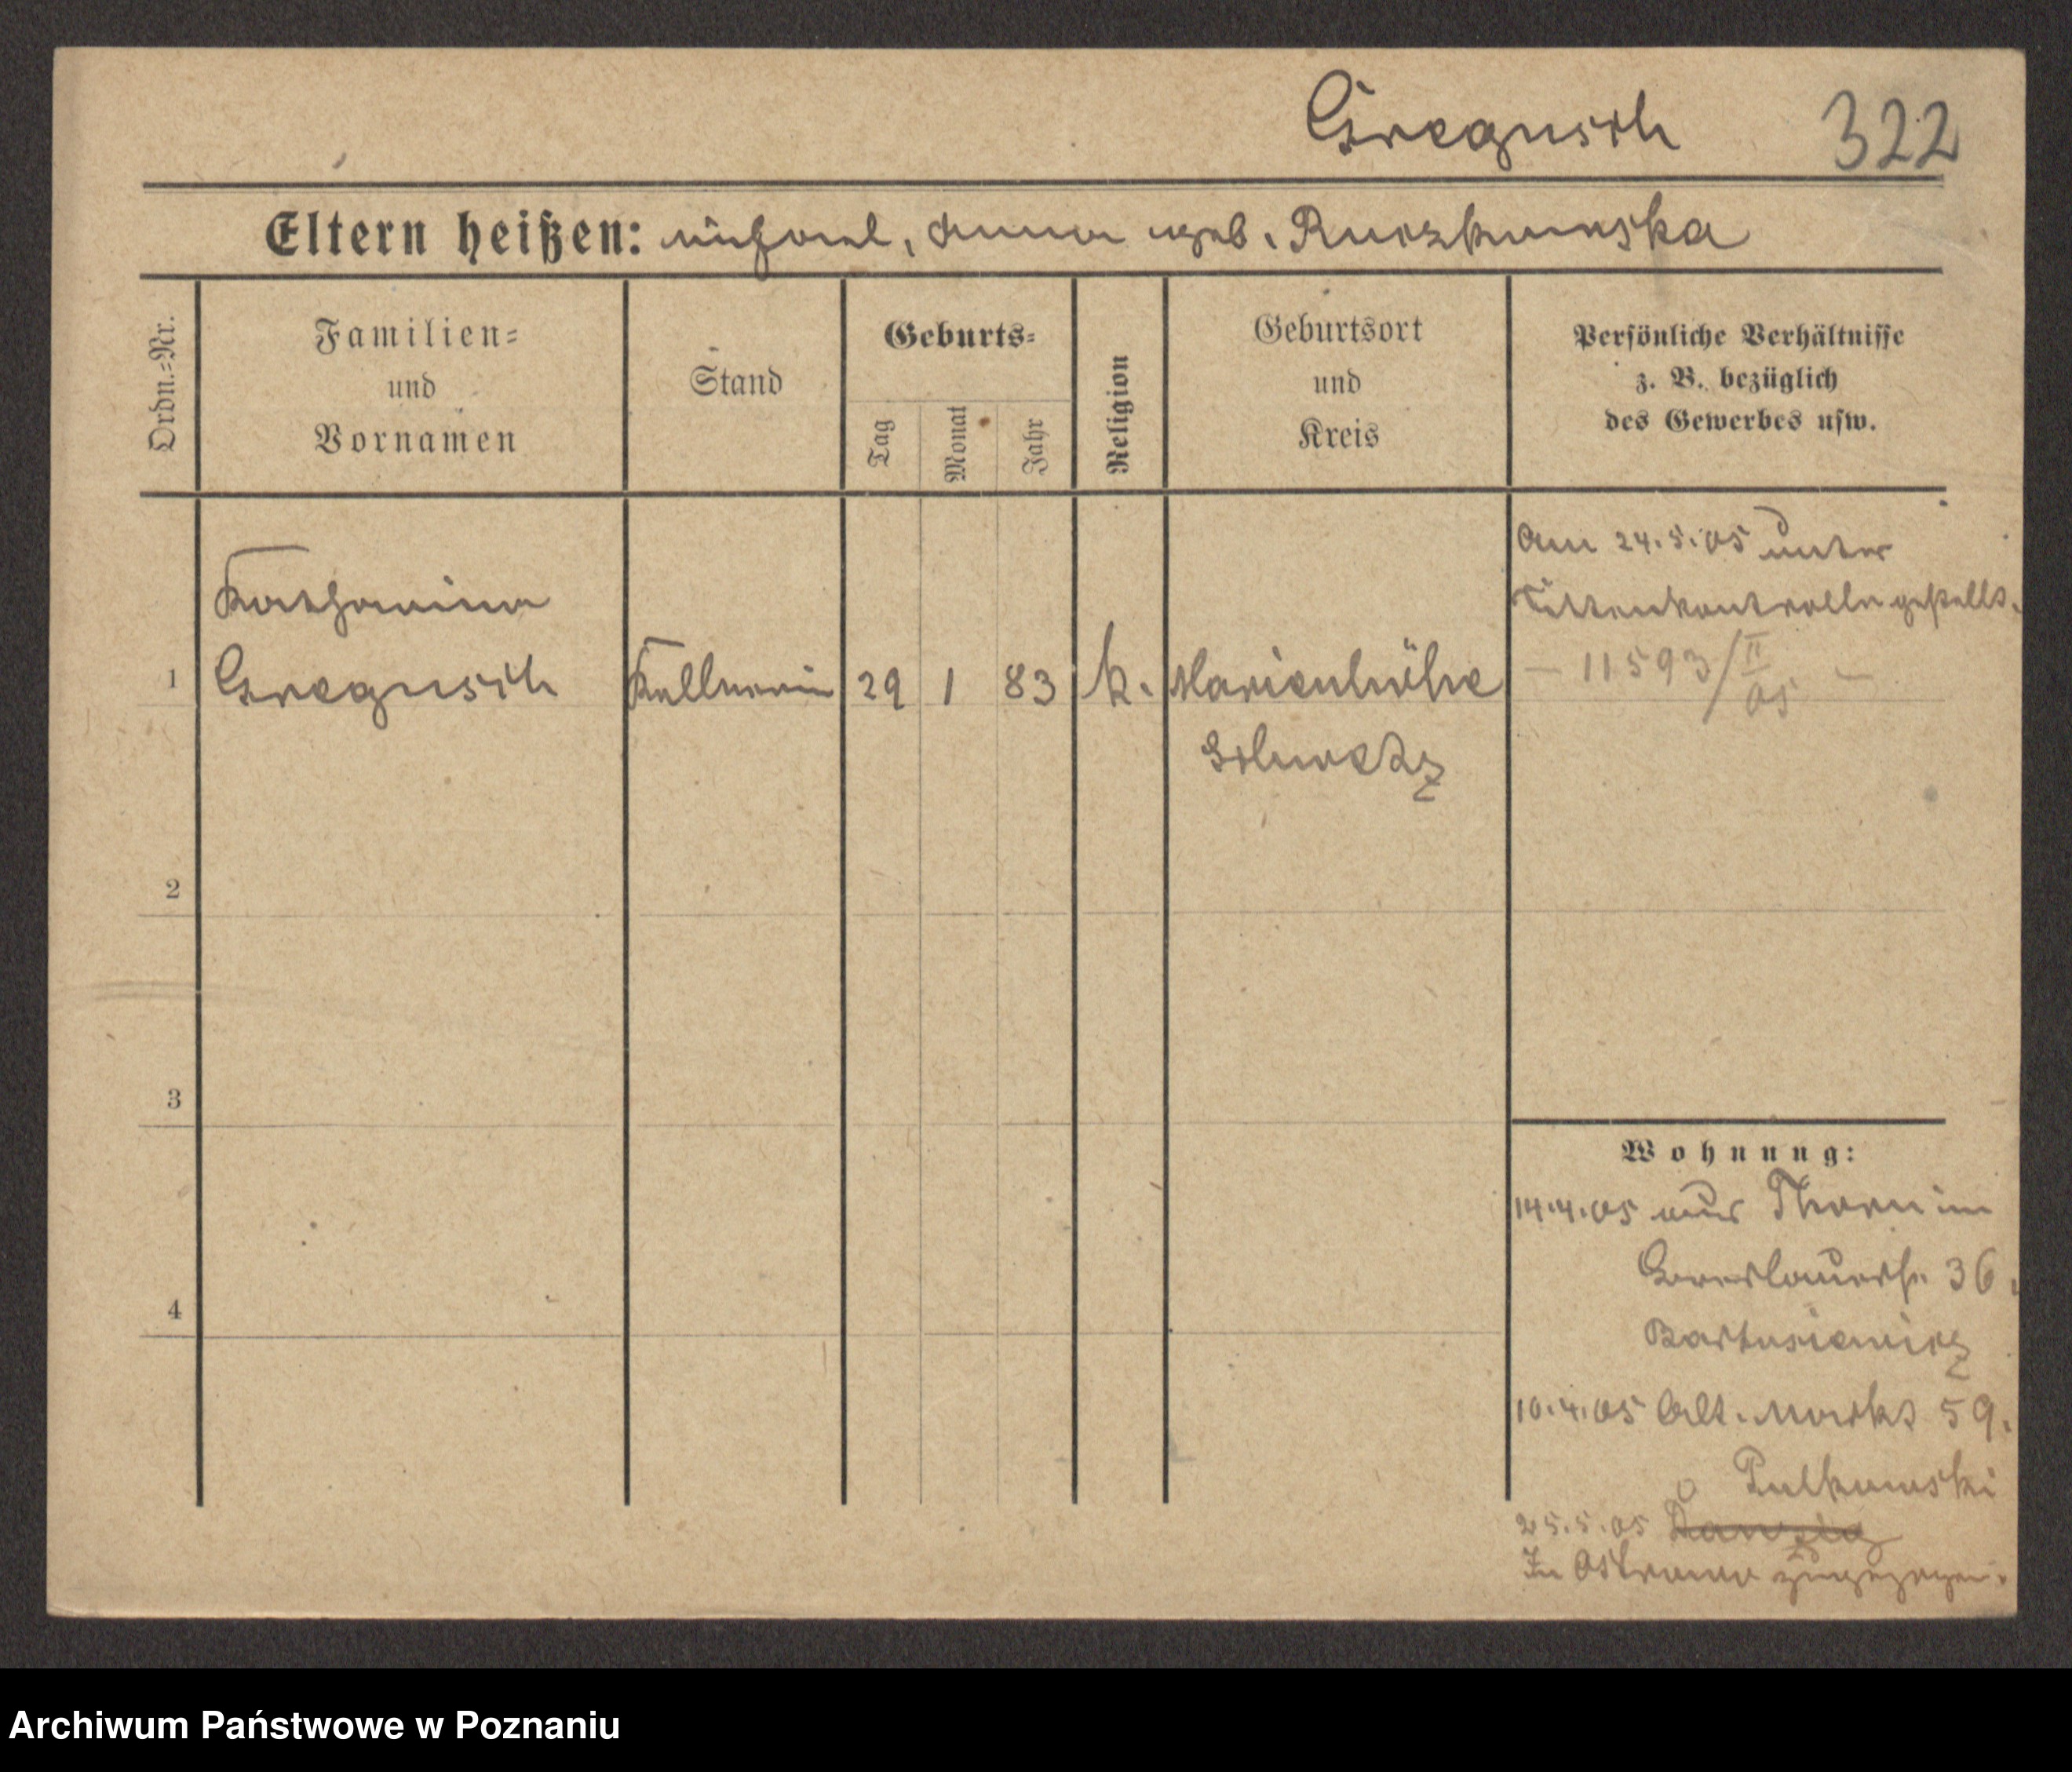 Gregusch 322
Eltern heißen: Michael, Anna geb. Ruczkowska
Ordn.-Nr.
Familien-
und
Vornamen
Stand
Geburts-
Tag
Monat
Jahr
Religion
Geburtsort
und
Kreis
Persönliche Verhältnisse
z. B. bezüglich
des Gewerbes usw.
Am 24.5.05 unter
Sittenkontrolle gestellt.
Katharina
1 Gregusch Kellnerin 29 1 83 k. Marienhöhe – 11593/II 05 –
Schwetz
2
3
4
Wohnung:
14.4.05 aus Thorn in
Breslauerstr. 36.
Bartusiewicz
10.4.05 Alt. Markt 59.
Pulkowski
25.5.05 Danzig
In Ostrowo zugezogen.
Archiwum Państwowe w Poznaniu